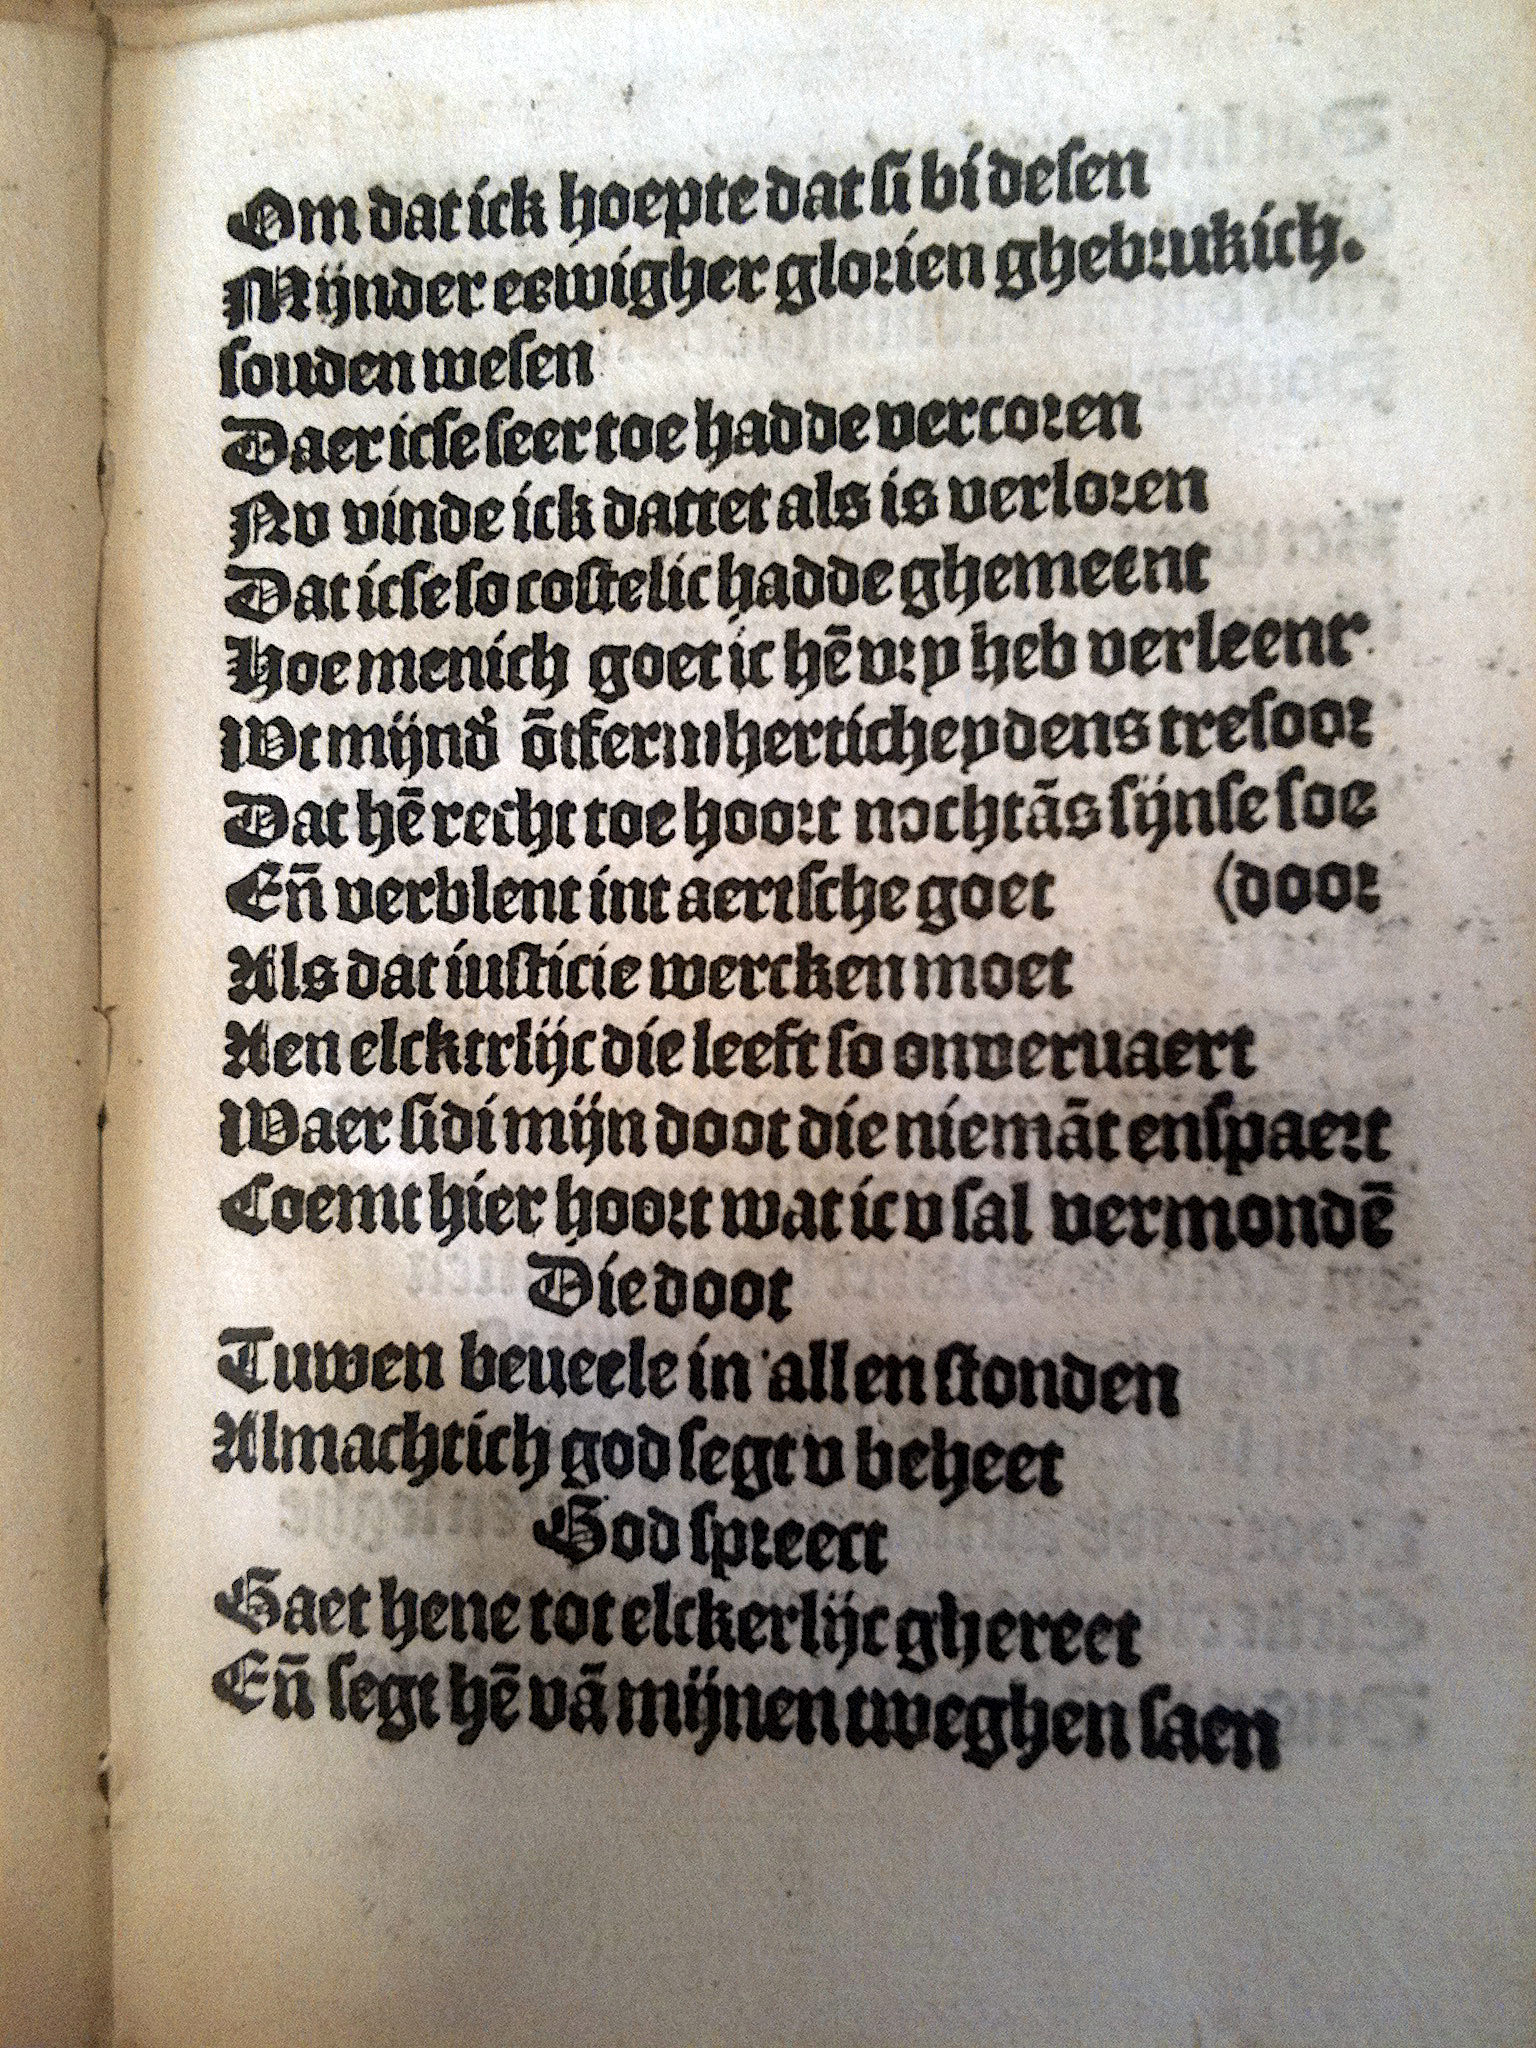 Om dat ick hoepte dat si bi desen
Mijnder eewigher glorien ghebrukich.
souden wesen
Daer icse seer toe hadde vercoren
Nv vinde ick dattet als is verloren
Dat icse so costelic hadde ghemeent
Hoe menich goet ic hē vry heb verleent
Wt mijnd' ōtfermherticheydens tresoor
Dat hē recht toe hoort nochtās sijnse soe
En̄ verblent int aertsche goet (door
Als dat iusticie wercken moet
Aen elcktrlijc die leeft so onveruaert
Waer sidi mijn doot die niemāt enspaert
Coemt hier hoort wat ic v sal vermondē
Die doot
Tuwen beueele in allen stonden
Almachtich god segt v beheet
God spreect
Gaet hene tot elckerlijc ghereet
En̄ segt hē vā mijnen tweghen saen